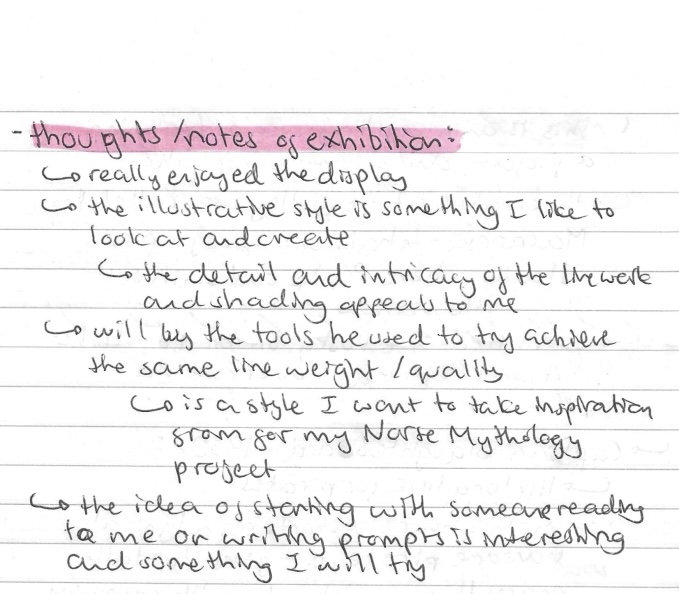 - thoughts/notes of exhibition:
↳ really enjoyed the display
↳ the illustrative style is something I like to
look at and create
↳ the detail and intricacy of the linework
and shading appeals to me
↳ will by the tools he used to try achieve
the same line weight / quality
↳ is a style I want to take inspiration
from for my Norse Mythology
project
↳ the idea of starting with someone reading
to me or writing prompts is interesting
and something I will try